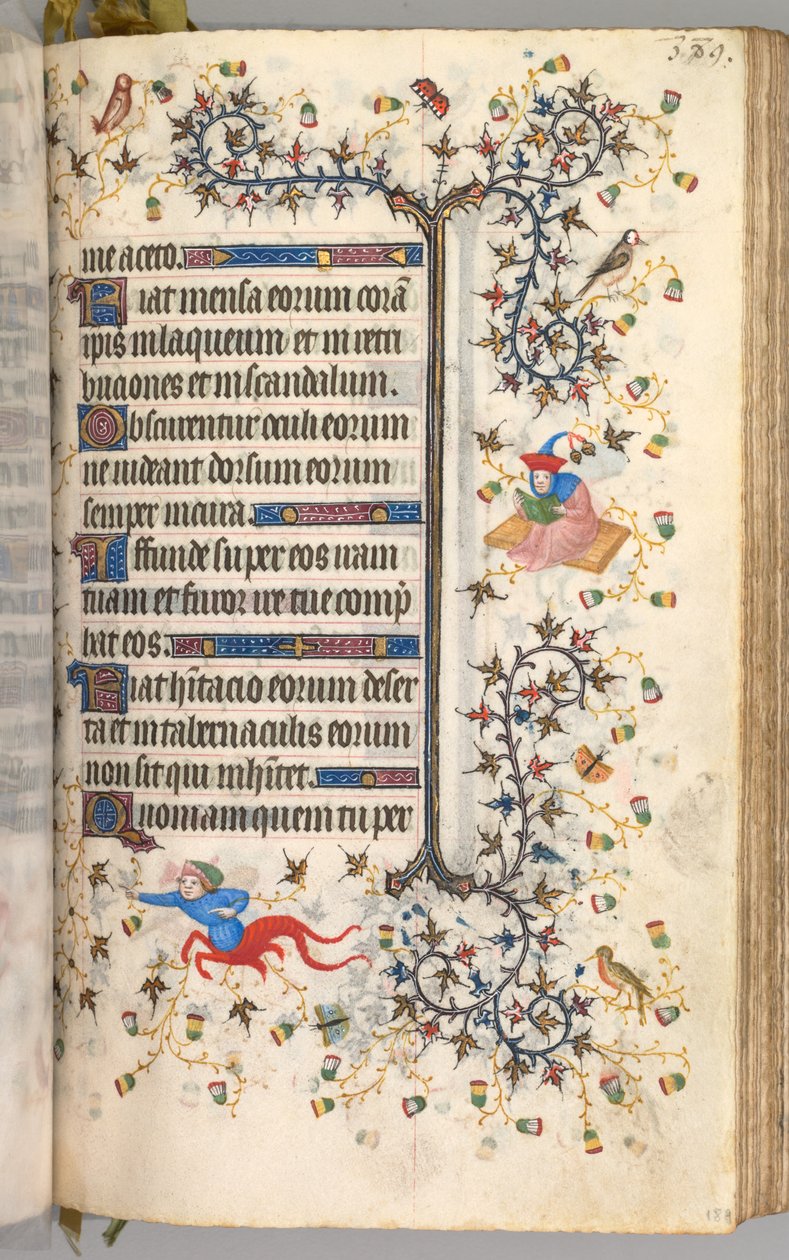 389.
me aceto.
Fiat mensa eorum corā
ipis in laqueum et in retri
buciones et in scandalum.
Obscurentur oculi eorum
ne uideant dorsum eorum
semper incura.
Effunde super eos iram
tuam et furor ire tue comp̄
hat eos.
Fiat hītacio eorum deser
ta et in tabernaculis eorum
non sit qui inhītet.
Quoniam quem tu per
189